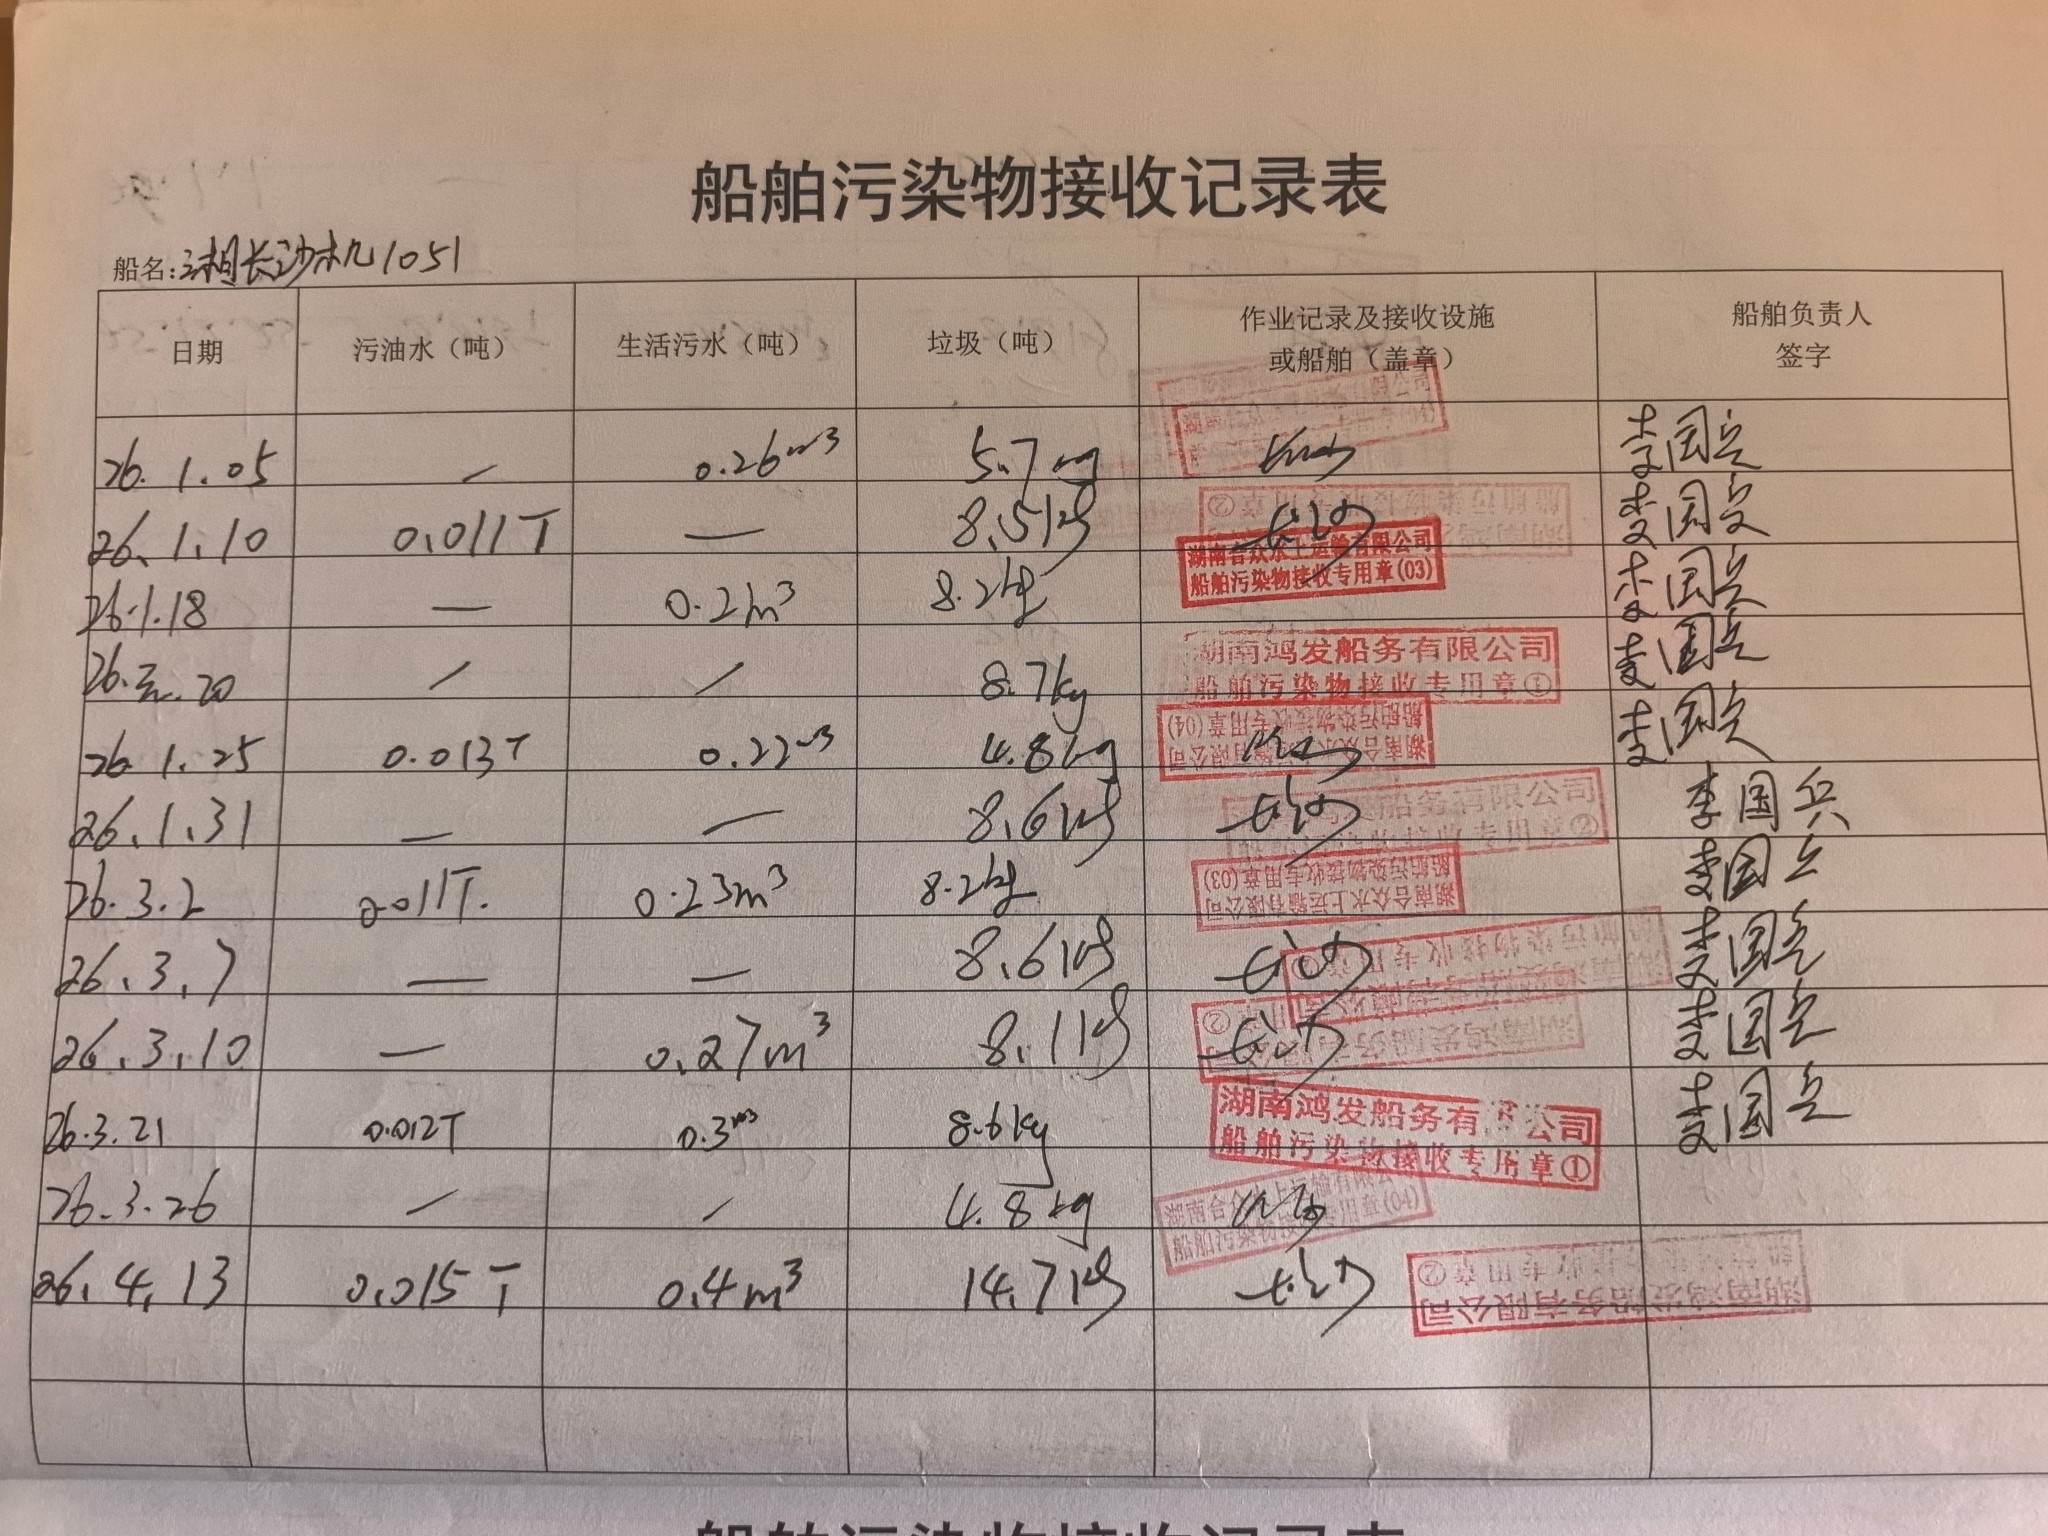 船舶污染物接收记录表
船名:湘长沙机1051
日期 污油水（吨） 生活污水（吨） 垃圾（吨） 作业记录及接收设施 或船舶（盖章） 船舶负责人 签字
26.1.05 / 0.26m³ 5.7kg 李国兵
26.1.10 0.011T — 8.5kg 长沙 李国兵
湖南合众水上运输有限公司
船舶污染物接收专用章(03)
26.1.18 — 0.2m³ 8.2kg 李国兵
26. .20 / / 8.7kg 李国兵
湖南鸿发船务有限公司
船舶污染物接收专用章①
26.1.25 0.013T 0.22m³ 4.8kg 李国兵
湖南合众水上运输有限公司
船舶污染物接收专用章(04)
26.1.31 — — 8.6kg 长沙 李国兵
船务有限公司
专用章②
26.3.2 0.011T. 0.23m³ 8.2kg 李国兵
湖南合众水上运输有限公司
船舶污染物接收专用章(03)
26.3.7 — — 8.6kg 长沙 李国兵
26.3.10 — 0.27m³ 8.1kg 长沙 李国兵
26.3.21 0.012T 0.3m³ 8.6kg 李国兵
湖南鸿发船务有 公司
船舶污染物接收专用章①
26.3.26 / / 4.8kg
湖南合众水上运输有限公
船舶污染物接收专用章(04)
26.4.13 0.015T 0.4m³ 14.7kg 长沙
湖南鸿发船务有限公司
船舶污染物接收专用章②